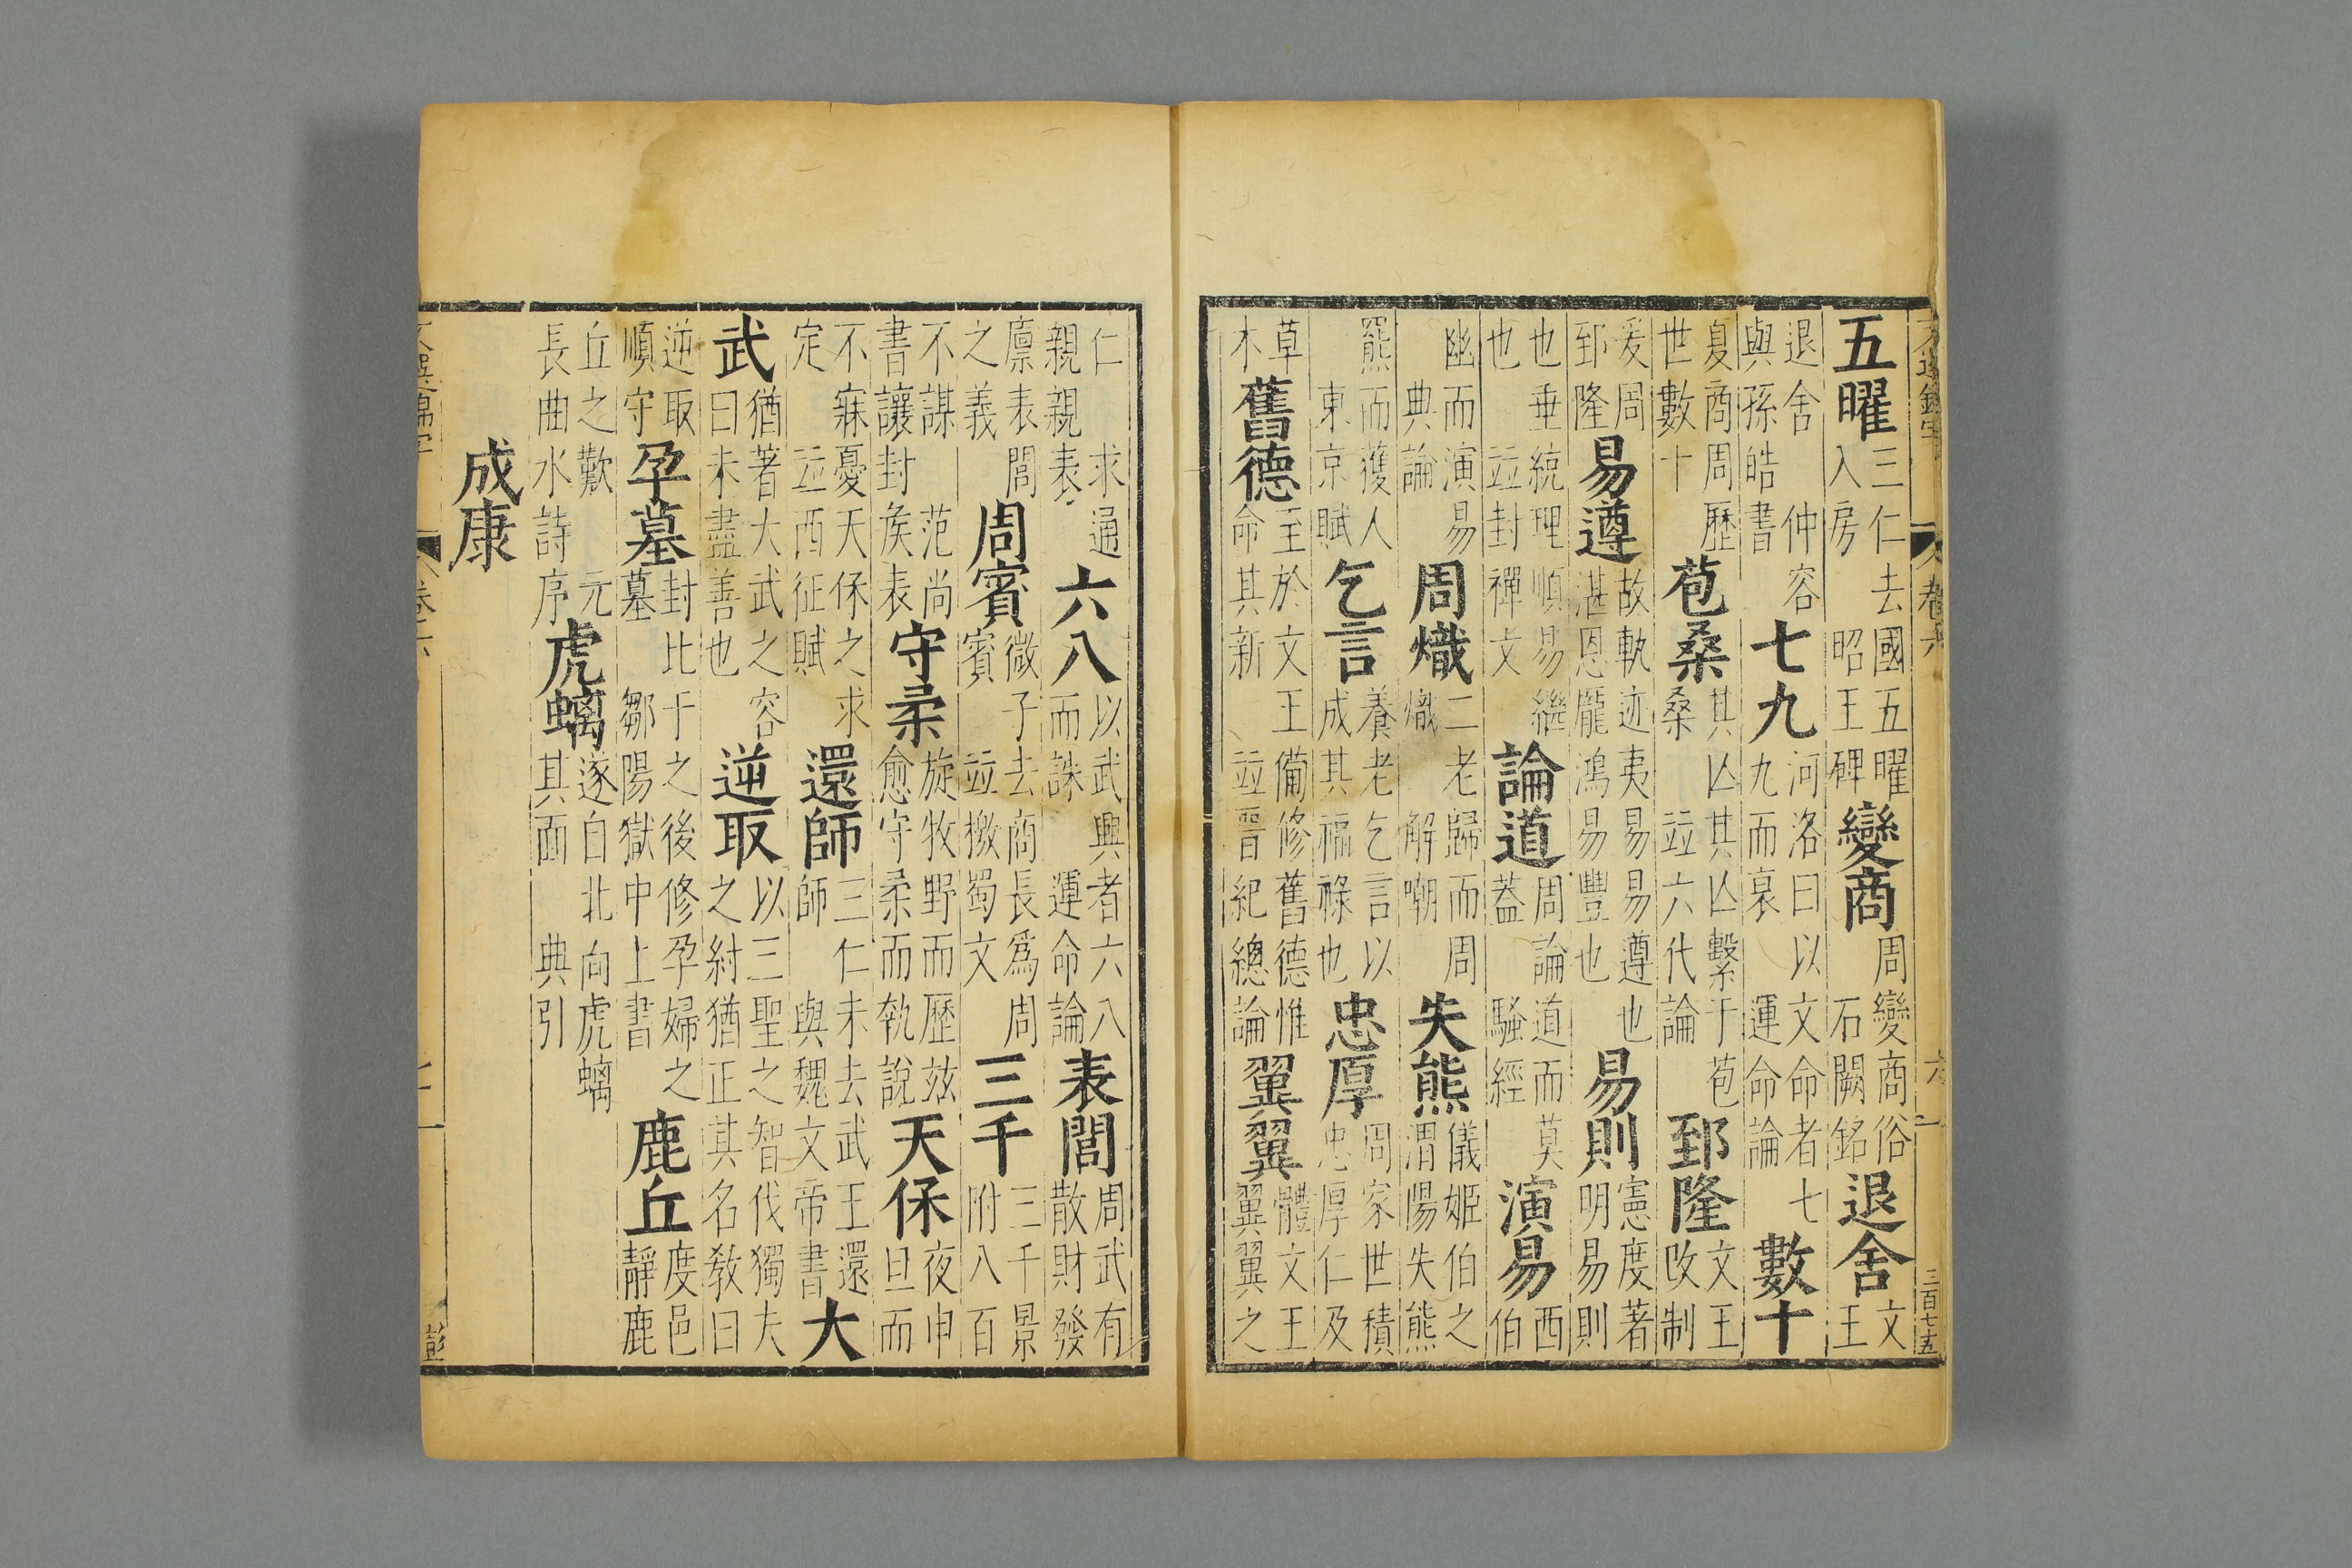 三百七五
五曜 三仁去國五曜入房 昭王碑 變商 周變商俗 石闕銘 退舍 文王
退舍 仲容與孫皓書 七九 河洛曰以文命者七九而衰 運命論 數十
夏商周歷世數十 苞桑 其亾其亾繫于苞桑 竝六代論 郅隆 文王改制
爰周郅隆 易遵 故軌迹夷易易遵也湛恩龐鴻易豐也 易則 憲度著明易則
也垂統理順易繼也 竝封禪文 論道 周論道而莫葢 騷經 演易 西伯
幽而演易 典論 周熾 二老歸而周熾 解嘲 失熊 儀姬伯之渭陽失熊
羆而獲人 東京賦 乞言 養老乞言以成其福祿也 忠厚 周家世積忠厚仁及
草木 舊德 至於文王備修舊德惟命其新 竝晉紀總論 翼翼 體文王翼翼之
仁 求通親親表 六八 以武興者六八而誅 運命論 表閭 周武有散財發
廪表閭之義 周賓 微子去商長爲周賓 竝檄蜀文 三千 三千景附八百
不謀 范尚書讓封矦表 守柔 旋牧野而歷茲愈守柔而執說 天保 夜申旦而
不寐憂天保之求定 竝西征賦 還師 三仁未去武王還師 與魏文帝書 大
武 猶著大武之容曰未盡善也 逆取 以三聖之智伐獨夫之紂猶正其名教曰
逆取順守 孕墓 封比干之後修孕婦之墓 鄒陽獄中上書 鹿丘 度邑靜鹿
丘之歎 元長曲水詩序 虎螭 遂自北向虎螭其面 典引
成康